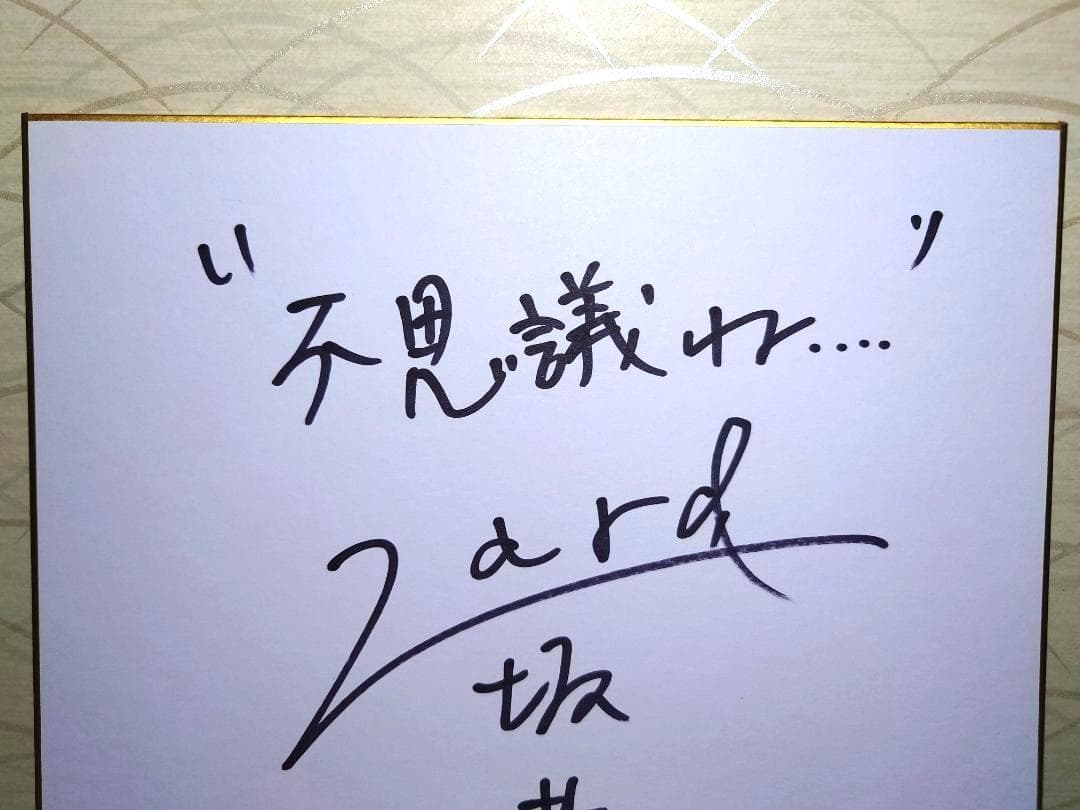 "不思議ね...."
Zard
坂
井